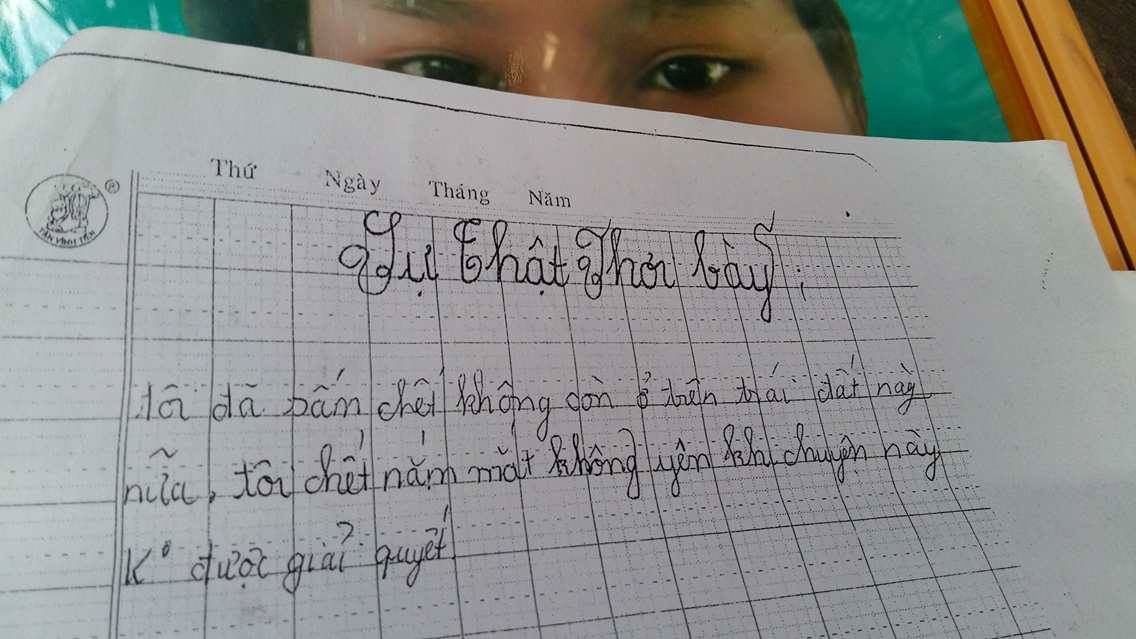 Thứ Ngày Tháng Năm
TÂN VĨNH TIẾN
®
Sự Thật Phơi bày :
tôi đã bấm chết không còn ở trên trái đất này
nữa, tôi chết nắm mắt không yên khi chuyện này
Kº được giải quyết